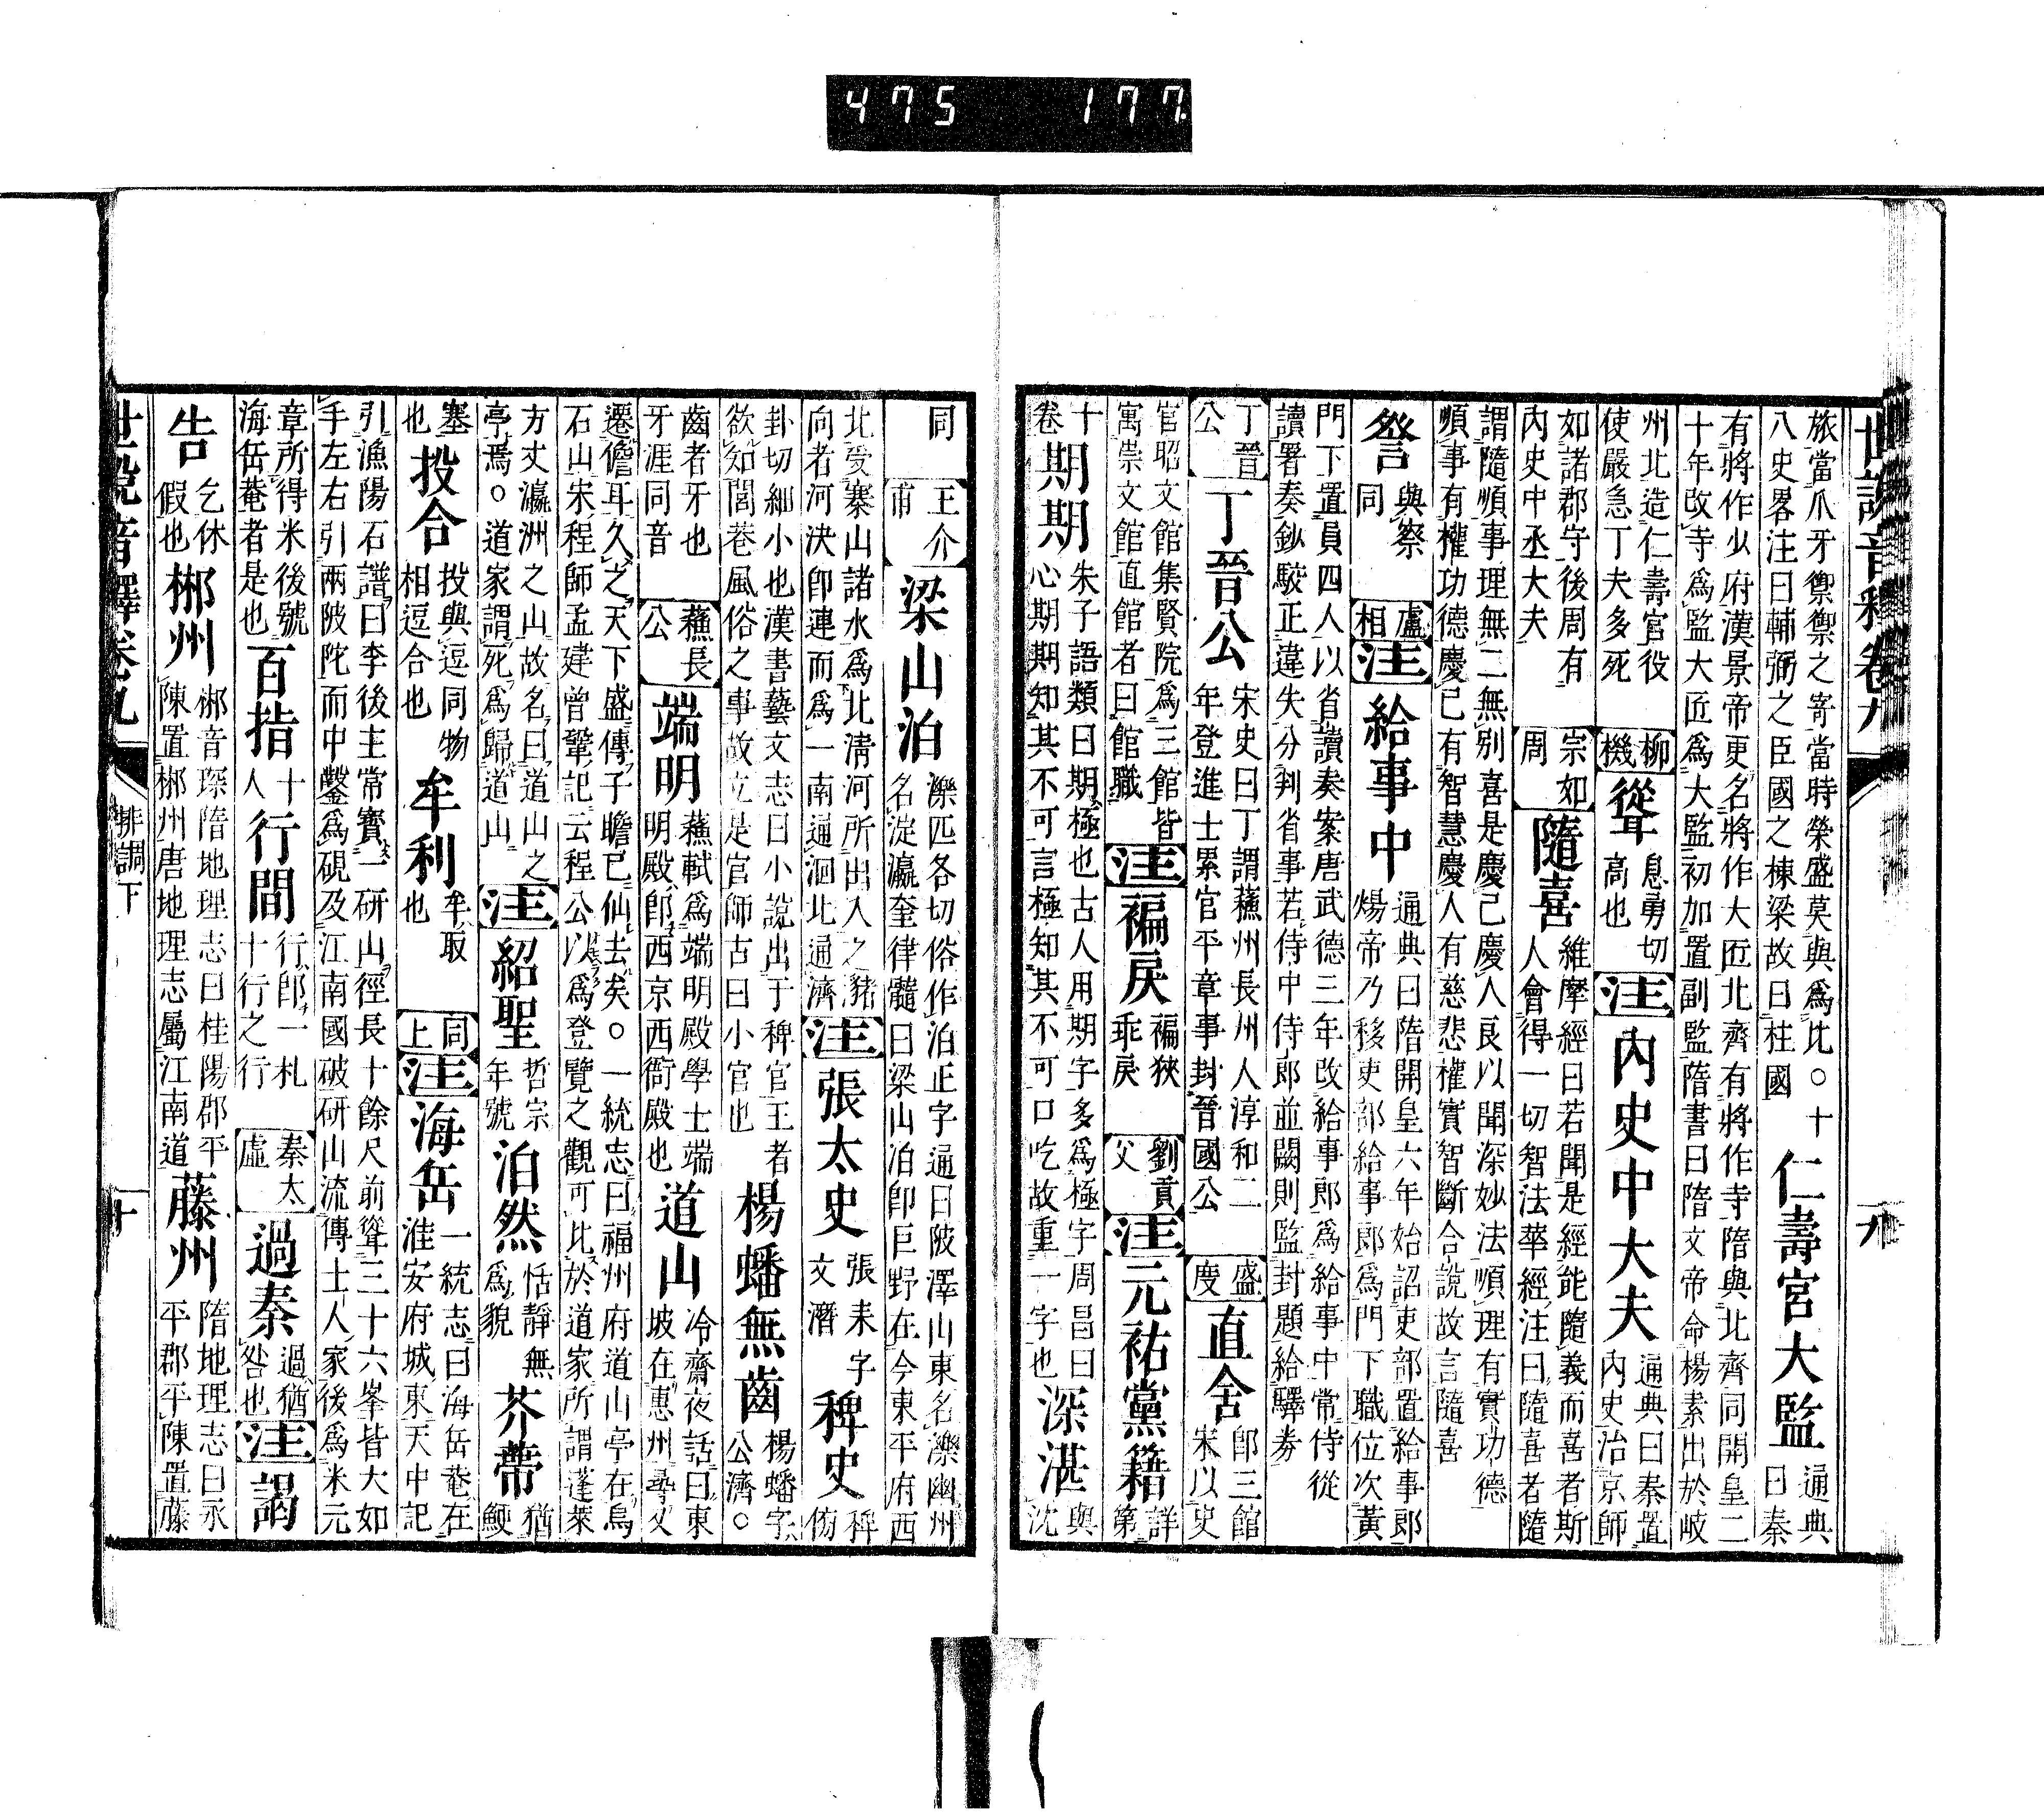 475 177
世說音釋卷九
九
旅當爪牙禦禦之寄當時榮盛莫與爲比。十
八史畧注曰輔弼之臣國之棟梁故曰柱國
仁壽宮大監 通典曰秦
有將作少府漢景帝更名將作大匠北齊有將作寺隋與北齊同開皇二
十年改寺爲監大匠爲大監初加置副監隋書曰隋文帝命楊素出於岐
州北造仁壽宮役使嚴急丁夫多死 柳機 聳 息勇切高也 注 內史中大夫 通典曰秦置內史治京師
如諸郡守後周有內史中丞大夫 宗如周 隨喜 維摩經曰若聞是經能隨義而喜者斯人會得一切智法華經注曰隨喜者隨
謂隨順事理無二無別喜是慶己慶人良以聞深妙法順理有實功德
順事有權功德慶己有智慧慶人有慈悲權實智斷合說故言隨喜
詧 與察同 盧相 注 給事中 通典曰隋開皇六年始詔吏部置給事郎煬帝乃移吏部給事郎爲門下職位次黃
門下置員四人以省讀奏案唐武德三年改給事郎爲給事中常侍從
讀署奏鈔駮正違失分判省事若侍中侍郎並闕則監封題給驛券
丁晉公 丁晉公 宋史曰丁謂蘇州長州人淳和二年登進士累官平章事封晉國公 盛度 直舍 卽三館宋以史
官昭文館集賢院爲三館皆寓崇文館直館者曰館職 注 褊戾 褊狹乖戾 劉貢父 注 元祐黨籍 詳第
十卷 期期 朱子語類曰期極也古人用期字多爲極字周昌曰心期期知其不可言極知其不可口吃故重一字也 深湛 與沈
同 王介甫 梁山泊 濼匹各切俗作泊正字通曰陂澤山東名濼幽州名淀瀛奎律髓曰梁山泊卽巨野在今東平府西
北受寨山諸水爲北淸河所出入之豬向者河決卽連而爲一南通洄北通濟 注 張太史 張耒字文潛 稗史 稗傍
卦切細小也漢書藝文志曰小說出于稗官王者欲知閭巷風俗之事故立是官師古曰小官也 楊蟠無齒 楊蟠字公濟。
齒者牙也牙涯同音 蘇長公 端明 蘇軾爲端明殿學士端明殿卽西京西衙殿也 道山 冷齋夜話曰東坡在惠州尋又
遷儋耳久之天下盛傳子瞻已仙去矣。一統志曰福州府道山亭在烏
石山宋程師孟建曾鞏記云程公以爲登覽之觀可比於道家所謂蓬萊
方丈瀛洲之山故名曰道山之亭焉。道家謂死爲歸道山 注 紹聖 哲宗年號 泊然 恬靜無爲貌 芥蔕 猶鯁
塞也 投合 投與逗同物相逗合也 牟利 牟取也 同上 注 海岳 一統志曰海岳菴在淮安府城東天中記
引漁陽石譜曰李後主常寳一硏山徑長十餘尺前聳三十六峯皆大如
手左右引兩陂陀而中鑿爲硯及江南國破硏山流傳士人家後爲米元
章所得米後號海岳菴者是也 百指 十人 行間 行卽一札十行之行 秦太虛 過秦 過猶咎也 注 謁
告 乞休假也 郴州 郴音琛隋地理志曰桂陽郡平陳置郴州唐地理志屬江南道 藤州 隋地理志曰永平郡平陳置藤
世說音釋卷九
排調下
十